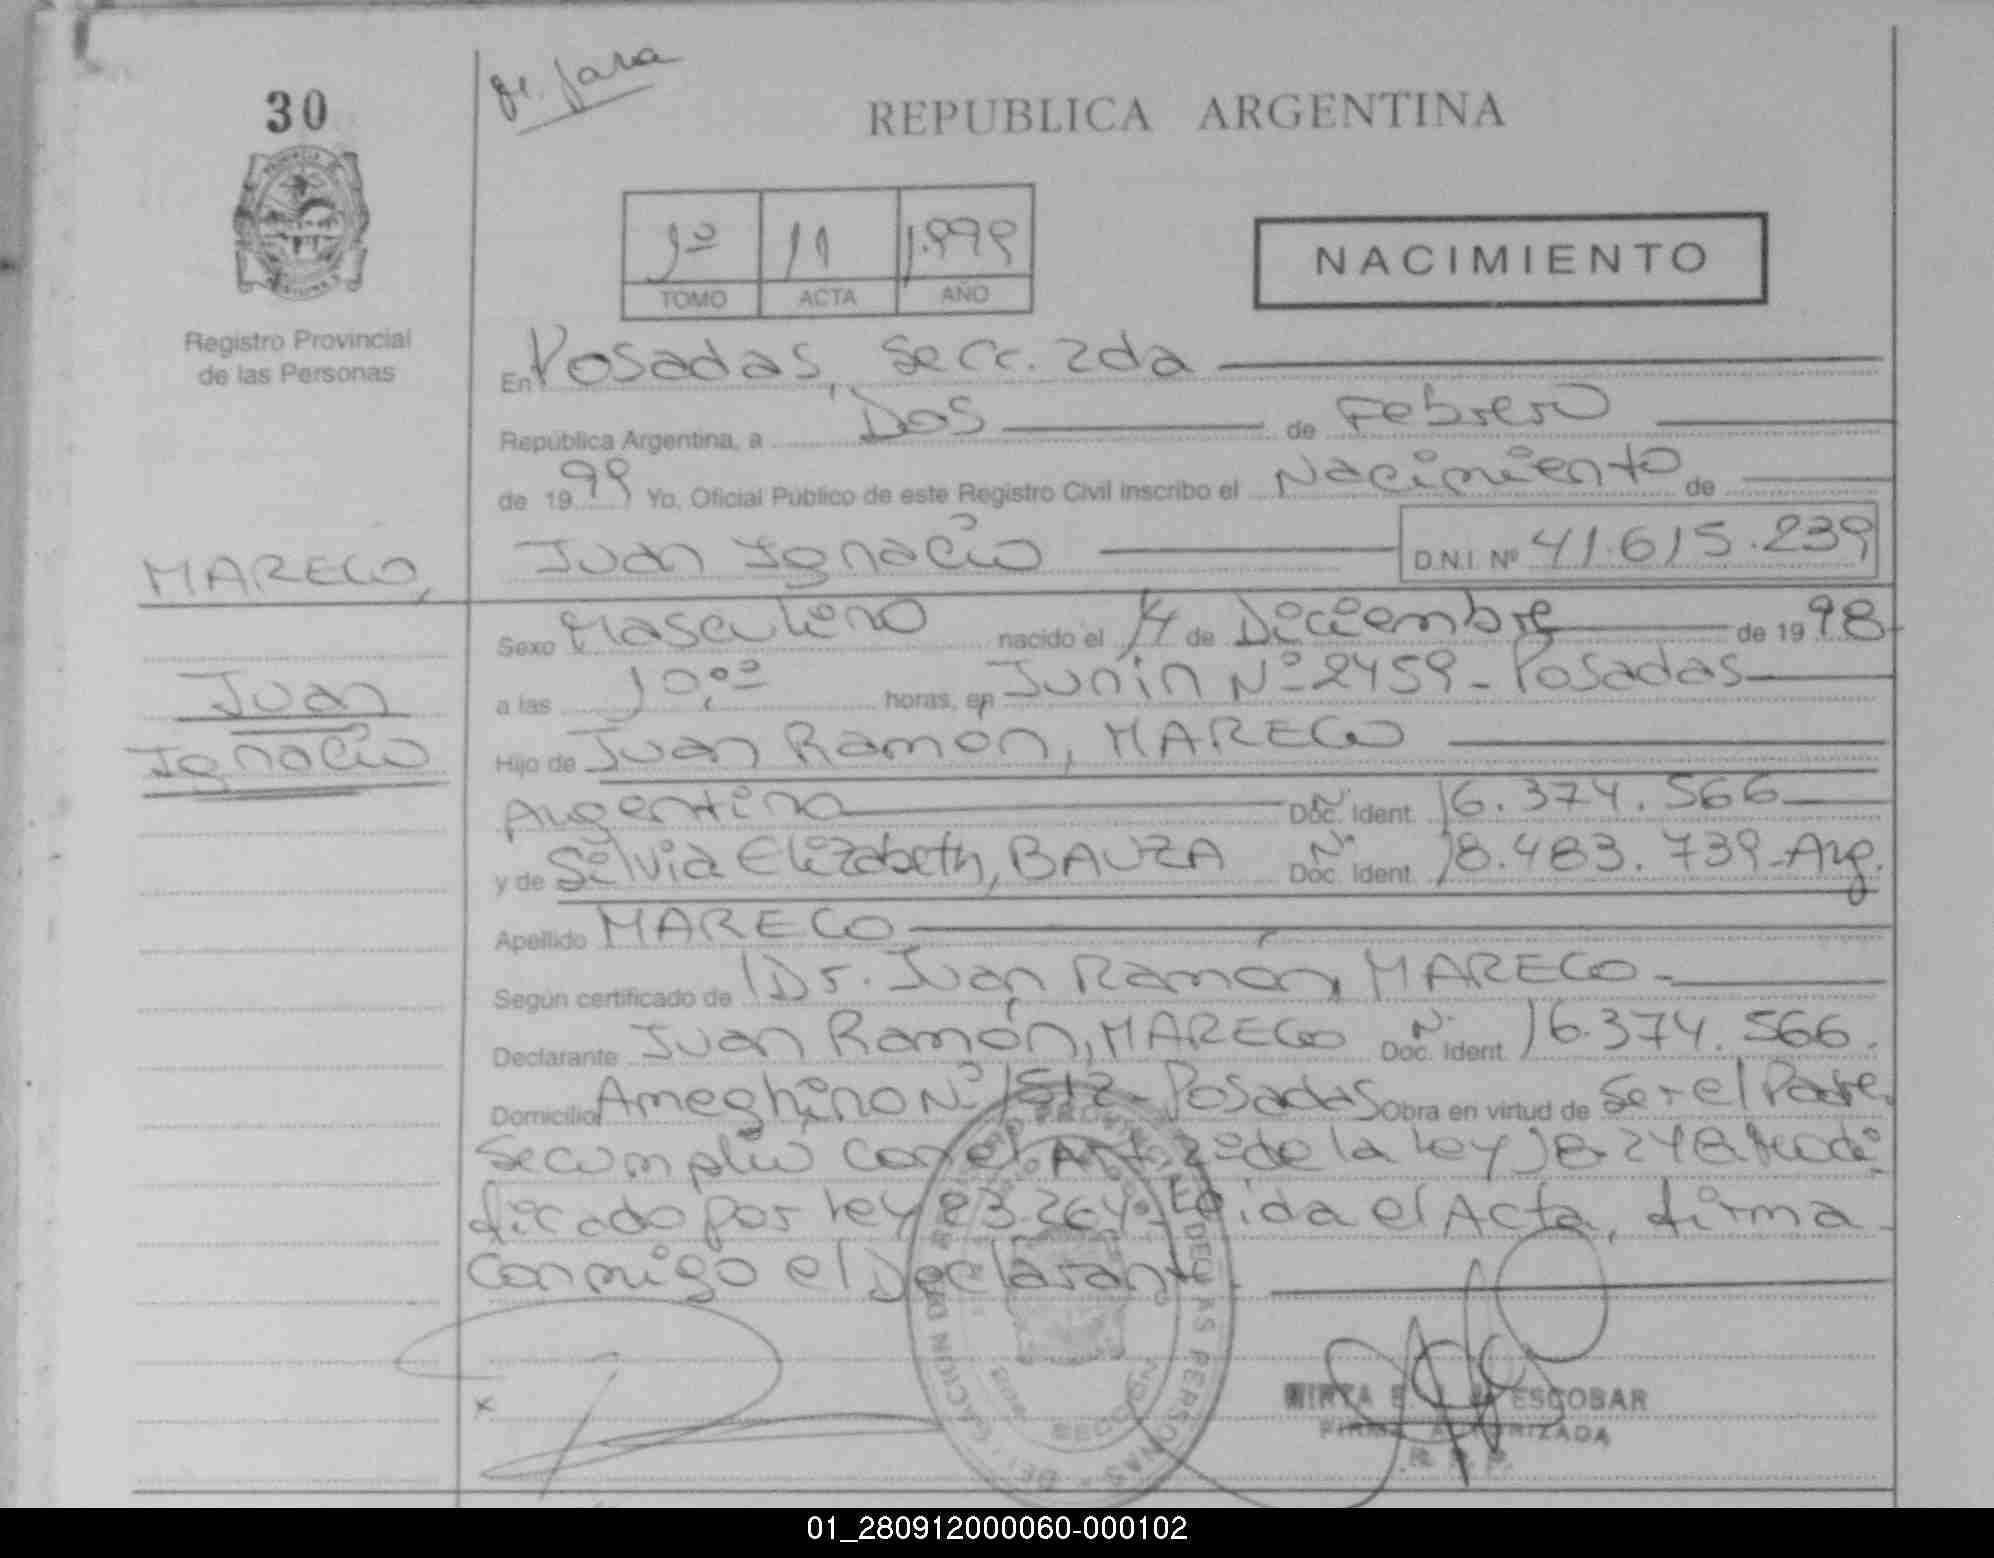 30
REPUBLICA ARGENTINA
1º 11 1.999
TOMO ACTA AÑO
NACIMIENTO
Registro Provincial
de las Personas
En Posadas, Secc. 2da
República Argentina, a Dos de Febrero
de 1999 Yo, Oficial Público de este Registro Civil inscribo el Nacimiento de
Juan Ignacio D.N.I. Nº 41.615.239
MARECO,
Juan
Ignacio
Sexo Masculino nacido el 14 de Diciembre de 1998
a las 10,ºº horas, en Junin Nº 2459 - Posadas
Hijo de Juan Ramón, MARECO
Argentino Nº Doc. Ident. 16.374.566
y de Silvia Elizabeth, BAUZA Nº Doc. Ident. 18.483.739 - Arg.
Apellido MARECO
Según certificado de Dr. Juan Ramón, MARECO -
Declarante Juan Ramón, MARECO Nº Doc. Ident. 16.374.566.
Domicilio Ameghino Nº 1512 - Posadas Obra en virtud de Ser el Padre.
Se cumplió con el Art. 2º de la Ley 18.248 Modi-
ficado por Ley 23.264 - Leida el Acta, firma
conmigo el Declarante.
x
ESCOBAR
FIRMA AUTORIZADA
DE LAS PERSONAS
SECCION
01_280912000060-000102